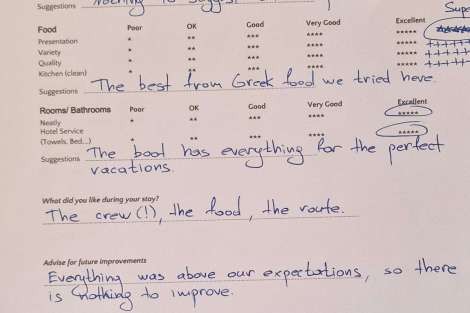 Suggestions Nothing to suggest
Supe
Food Poor OK Good Very Good Excellent
Presentation * ** *** **** *****
Variety * ** *** **** *****
Quality * ** *** **** *****
Kitchen (clean) * ** *** **** *****
Suggestions The best from Greek food we tried here.
Rooms/ Bathrooms Poor OK Good Very Good Excellent
Neatly * ** *** **** *****
Hotel Service
(Towels, Bed...) * ** *** **** *****
Suggestions The boat has everything for the perfect
vacations.
What did you like during your stay?
The crew (!), the food, the route.
Advise for future improvements
Everything was above our expectations, so there
is nothing to improve.